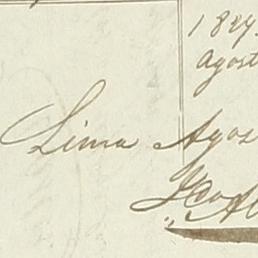 1827.
Agost
Lima Agos